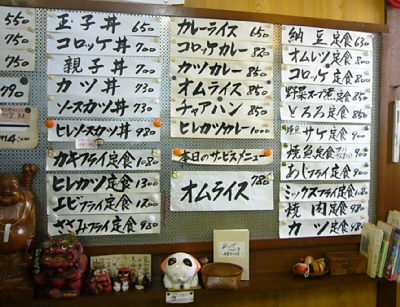 550
750
750
790
玉子丼 650
コロッケ丼 700
親子丼 700
カツ丼 730
ソースカツ丼 730
ヒレソースカツ丼 980
カキフライ定食 1080
ヒレカツ定食 1300
エビフライ定食 1200
ささみフライ定食 980
カレーライス 650
コロッケカレー 820
カツカレー 850
オムライス 850
チャアハン 850
ヒレカツカレー 1000
本日のサービスメニュー
オムライス 780
納豆定食 630
オムレツ定食
コロッケ定食
野菜スープ煮定食 850
とろろ定食 850
サケ定食 900
焼魚定食
あじフライ定食 900
ミックスフライ定食
焼肉定食 980
カツ定食 980